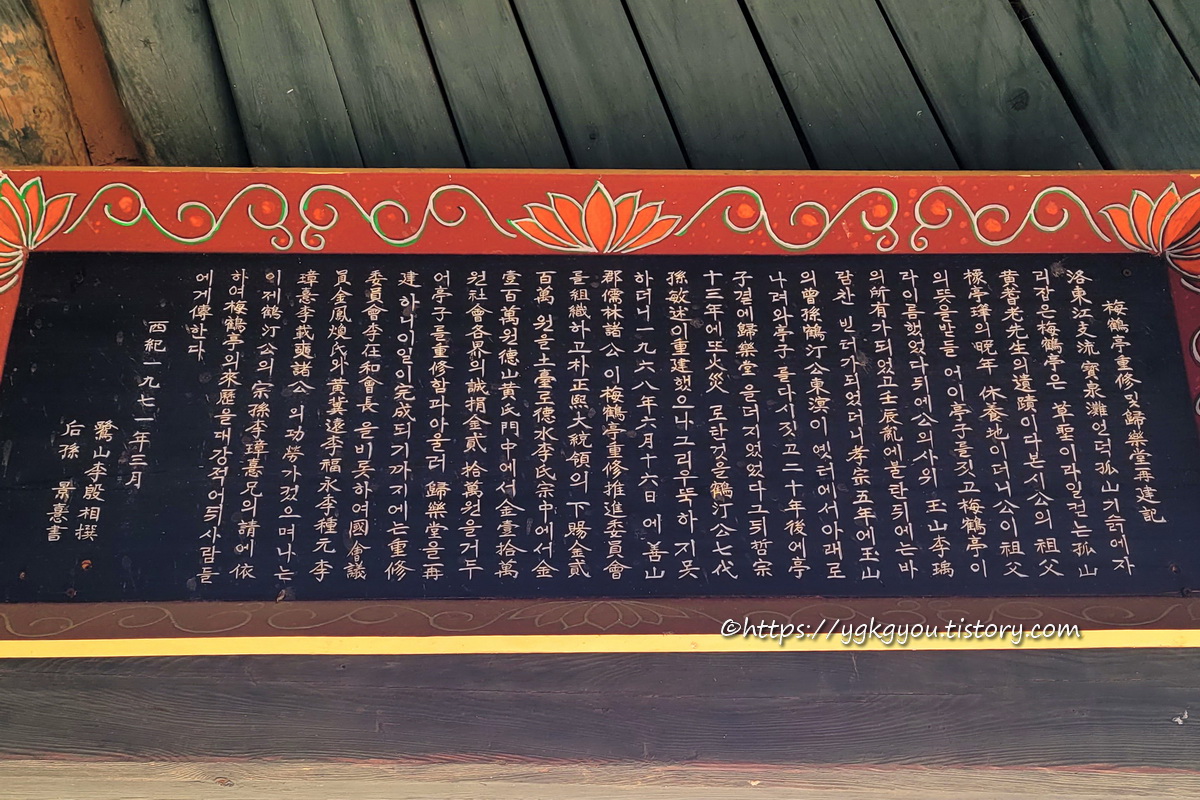 梅鶴亭重修및歸樂堂再建記
洛東江支流寶泉灘언덕孤山기슭에자
리잡은梅鶴亭은 草聖이라일컫는孤山
黃耆老先生의遺蹟이다본시公의 祖父
橡亭瑋의晩年 休養地이더니公이祖父
의뜻을받들어이亭子를짓고梅鶴亭이
라이름했었다뒤에公의사위 玉山李瑀
의所有가되었고壬辰亂에불탄뒤에는바
람찬 빈터가되었더니孝宗五年에玉山
의曾孫鶴汀公東溟이 옛터에서아래로
나려와亭子를다시짓고二十年後에亭
子곁에歸樂堂을더지었었다그뒤哲宗
十三年에또火災로탄것을鶴汀公七代
孫敏述이重建했으나그리우뚝하지못
하더니一九六八年六月十六日에善山
郡儒林諸公이梅鶴亭重修推進委員會
를組織하고朴正熙大統領의下賜金貳
百萬원을土臺로德水李氏宗中에서金
壹百萬원德山黃氏門中에서金壹拾萬
원社會各界의誠捐金貳拾萬원을거두
어亭子를重修함과아울러歸樂堂을再
建하니이일이完成되기까지에는重修
委員會李在和會長을비롯하여國會議
員金鳳煥氏와黃冀遠李福永李種元李
璋憙李哉奭諸公의功勞가컸으며나는
이제鶴汀公의宗孫李璋憙兄의請에依
하여梅鶴亭의來歷을대강적어뒤사람들
에게傳한다
西紀一九七一年三月
鷺山李殷相撰
后孫 憙書
©https://ygkgyou.tistory.com